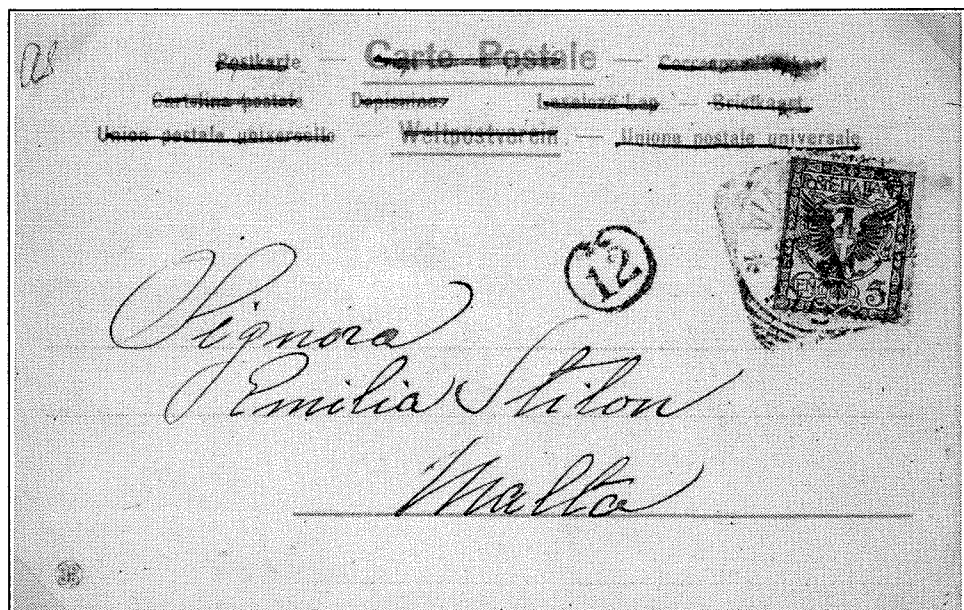 Postkarte — Carte Postale — Correspondenzkarte
Cartolina postale Dopisnice Levelező-Lap — Briefkaart
Union postale universelle — Weltpostverein — Unione postale universale
POSTE ITALIANE
CENT. 5
12
Signora
Emilia Stilon
Malta